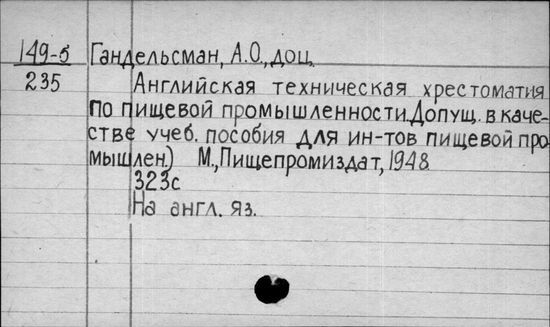 149-б Гандельсман, А.О., доц.
235 Английская техническая хрестоматия
по пищевой промышленности. Допущ. в каче-
стве учеб. пособия для ин-тов пищевой про-
мышлен.) М., Пищепромиздат, 1948.
323с
На англ. яз.